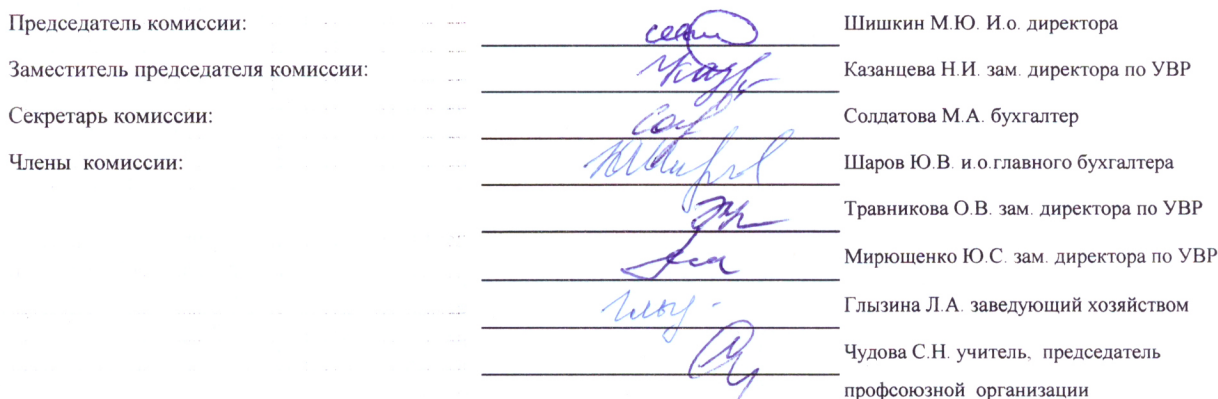 Председатель комиссии: Шишкин М.Ю. И.о. директора
Заместитель председателя комиссии: Казанцева Н.И. зам. директора по УВР
Секретарь комиссии: Солдатова М.А. бухгалтер
Члены комиссии: Шаров Ю.В. и.о.главного бухгалтера
Травникова О.В. зам. директора по УВР
Мирющенко Ю.С. зам. директора по УВР
Глызина Л.А. заведующий хозяйством
Чудова С.Н. учитель, председатель
профсоюзной организации